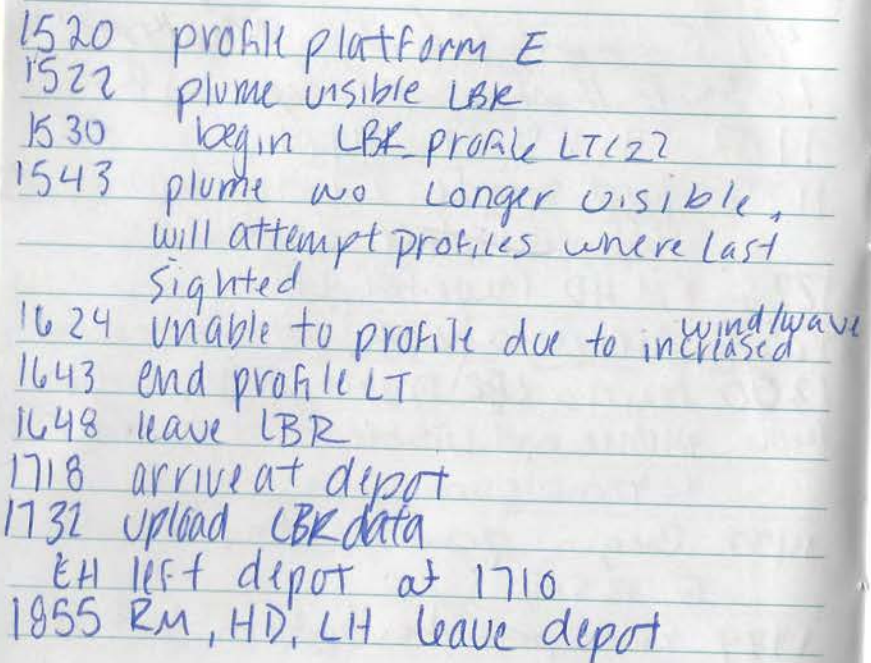 1520 profile platform E
1522 plume visible LBR
1530 begin LBR profile LT122
1543 plume no longer visible,
will attempt profiles where last
sighted
1624 unable to profile due to increased wind/wave
1643 end profile LT
1648 leave LBR
1718 arrive at depot
1732 upload LBR data
EH left depot at 1710
1855 RM, HD, LH leave depot